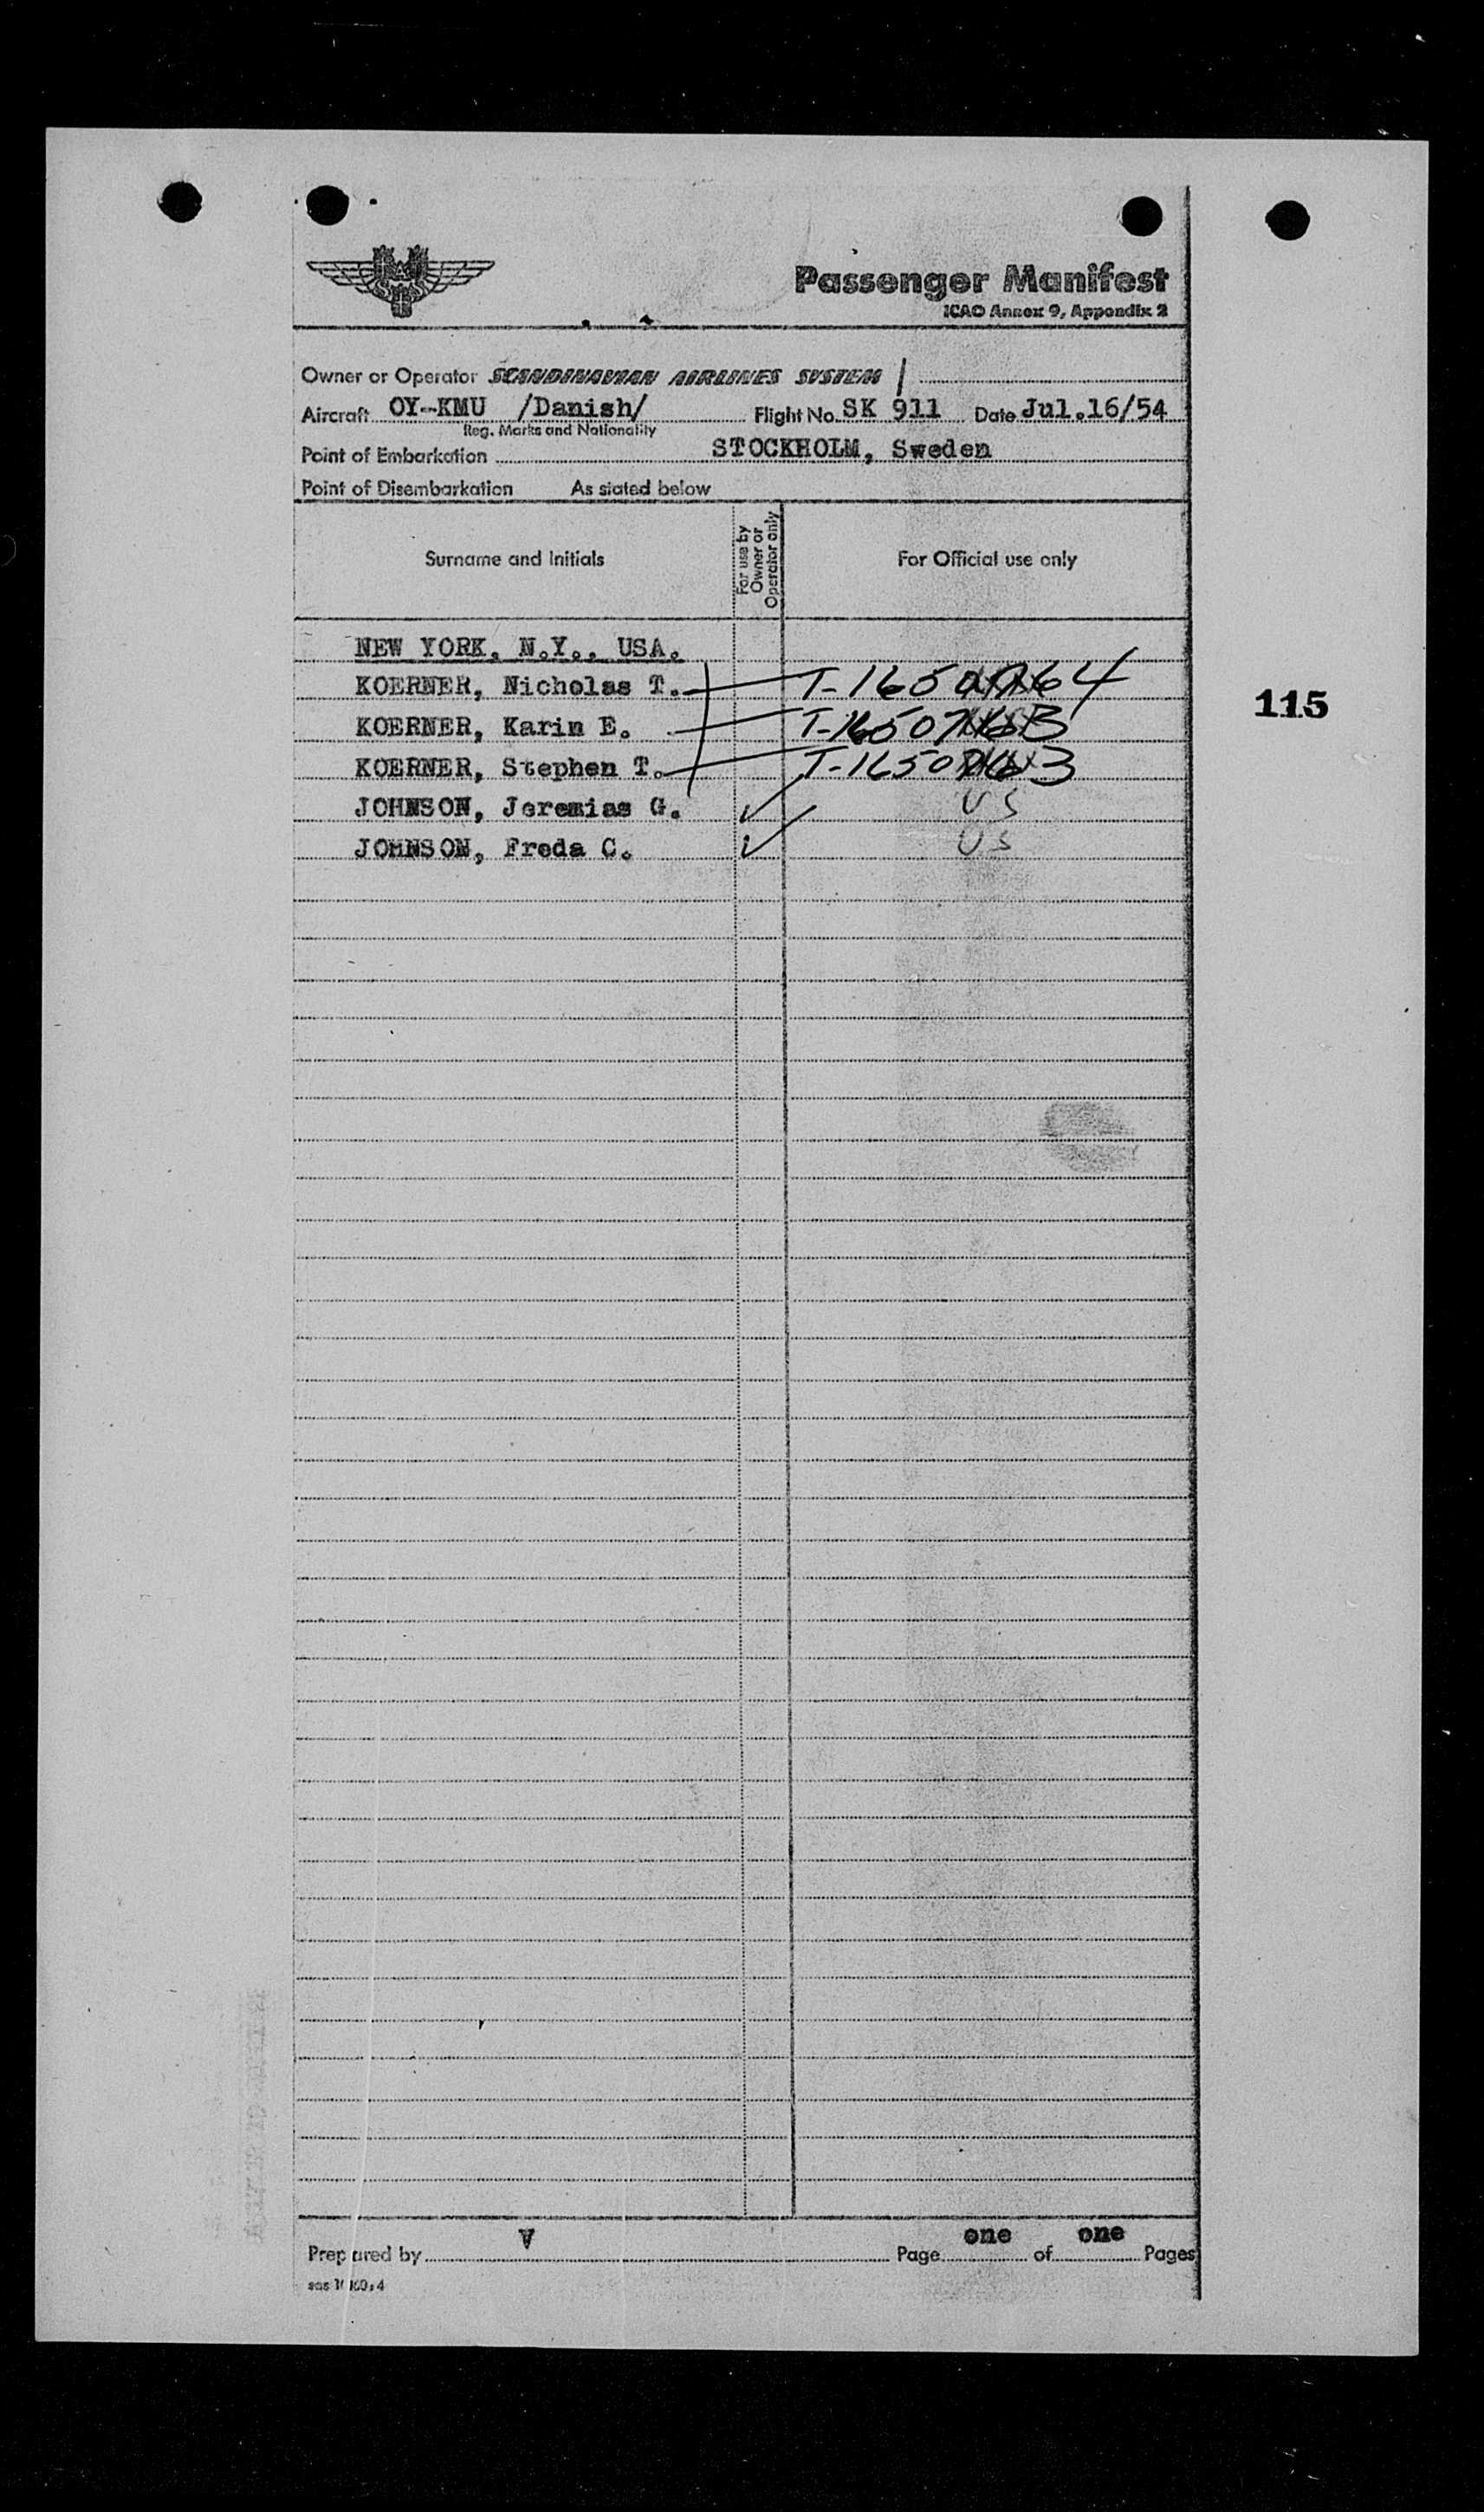 Passenger Manifest
ICAO Annex 9, Appendix 2
Owner or Operator SCANDINAVIAN AIRLINES SYSTEM
Aircraft OY-KMU /Danish/ Flight No. SK 911 Date Jul.16/54
Reg. Marks and Nationality
Point of Embarkation STOCKHOLM, Sweden
Point of Disembarkation As stated below
Surname and Initials For use by Owner or Operator only For Official use only
NEW YORK, N.Y., USA.
KOERNER, Nicholas T.
115
KOERNER, Karin E.
KOERNER, Stephen T.
JOHNSON, Jeremias G. US
JOHNSON, Freda C. US
Prepared by V Page one of one Pages